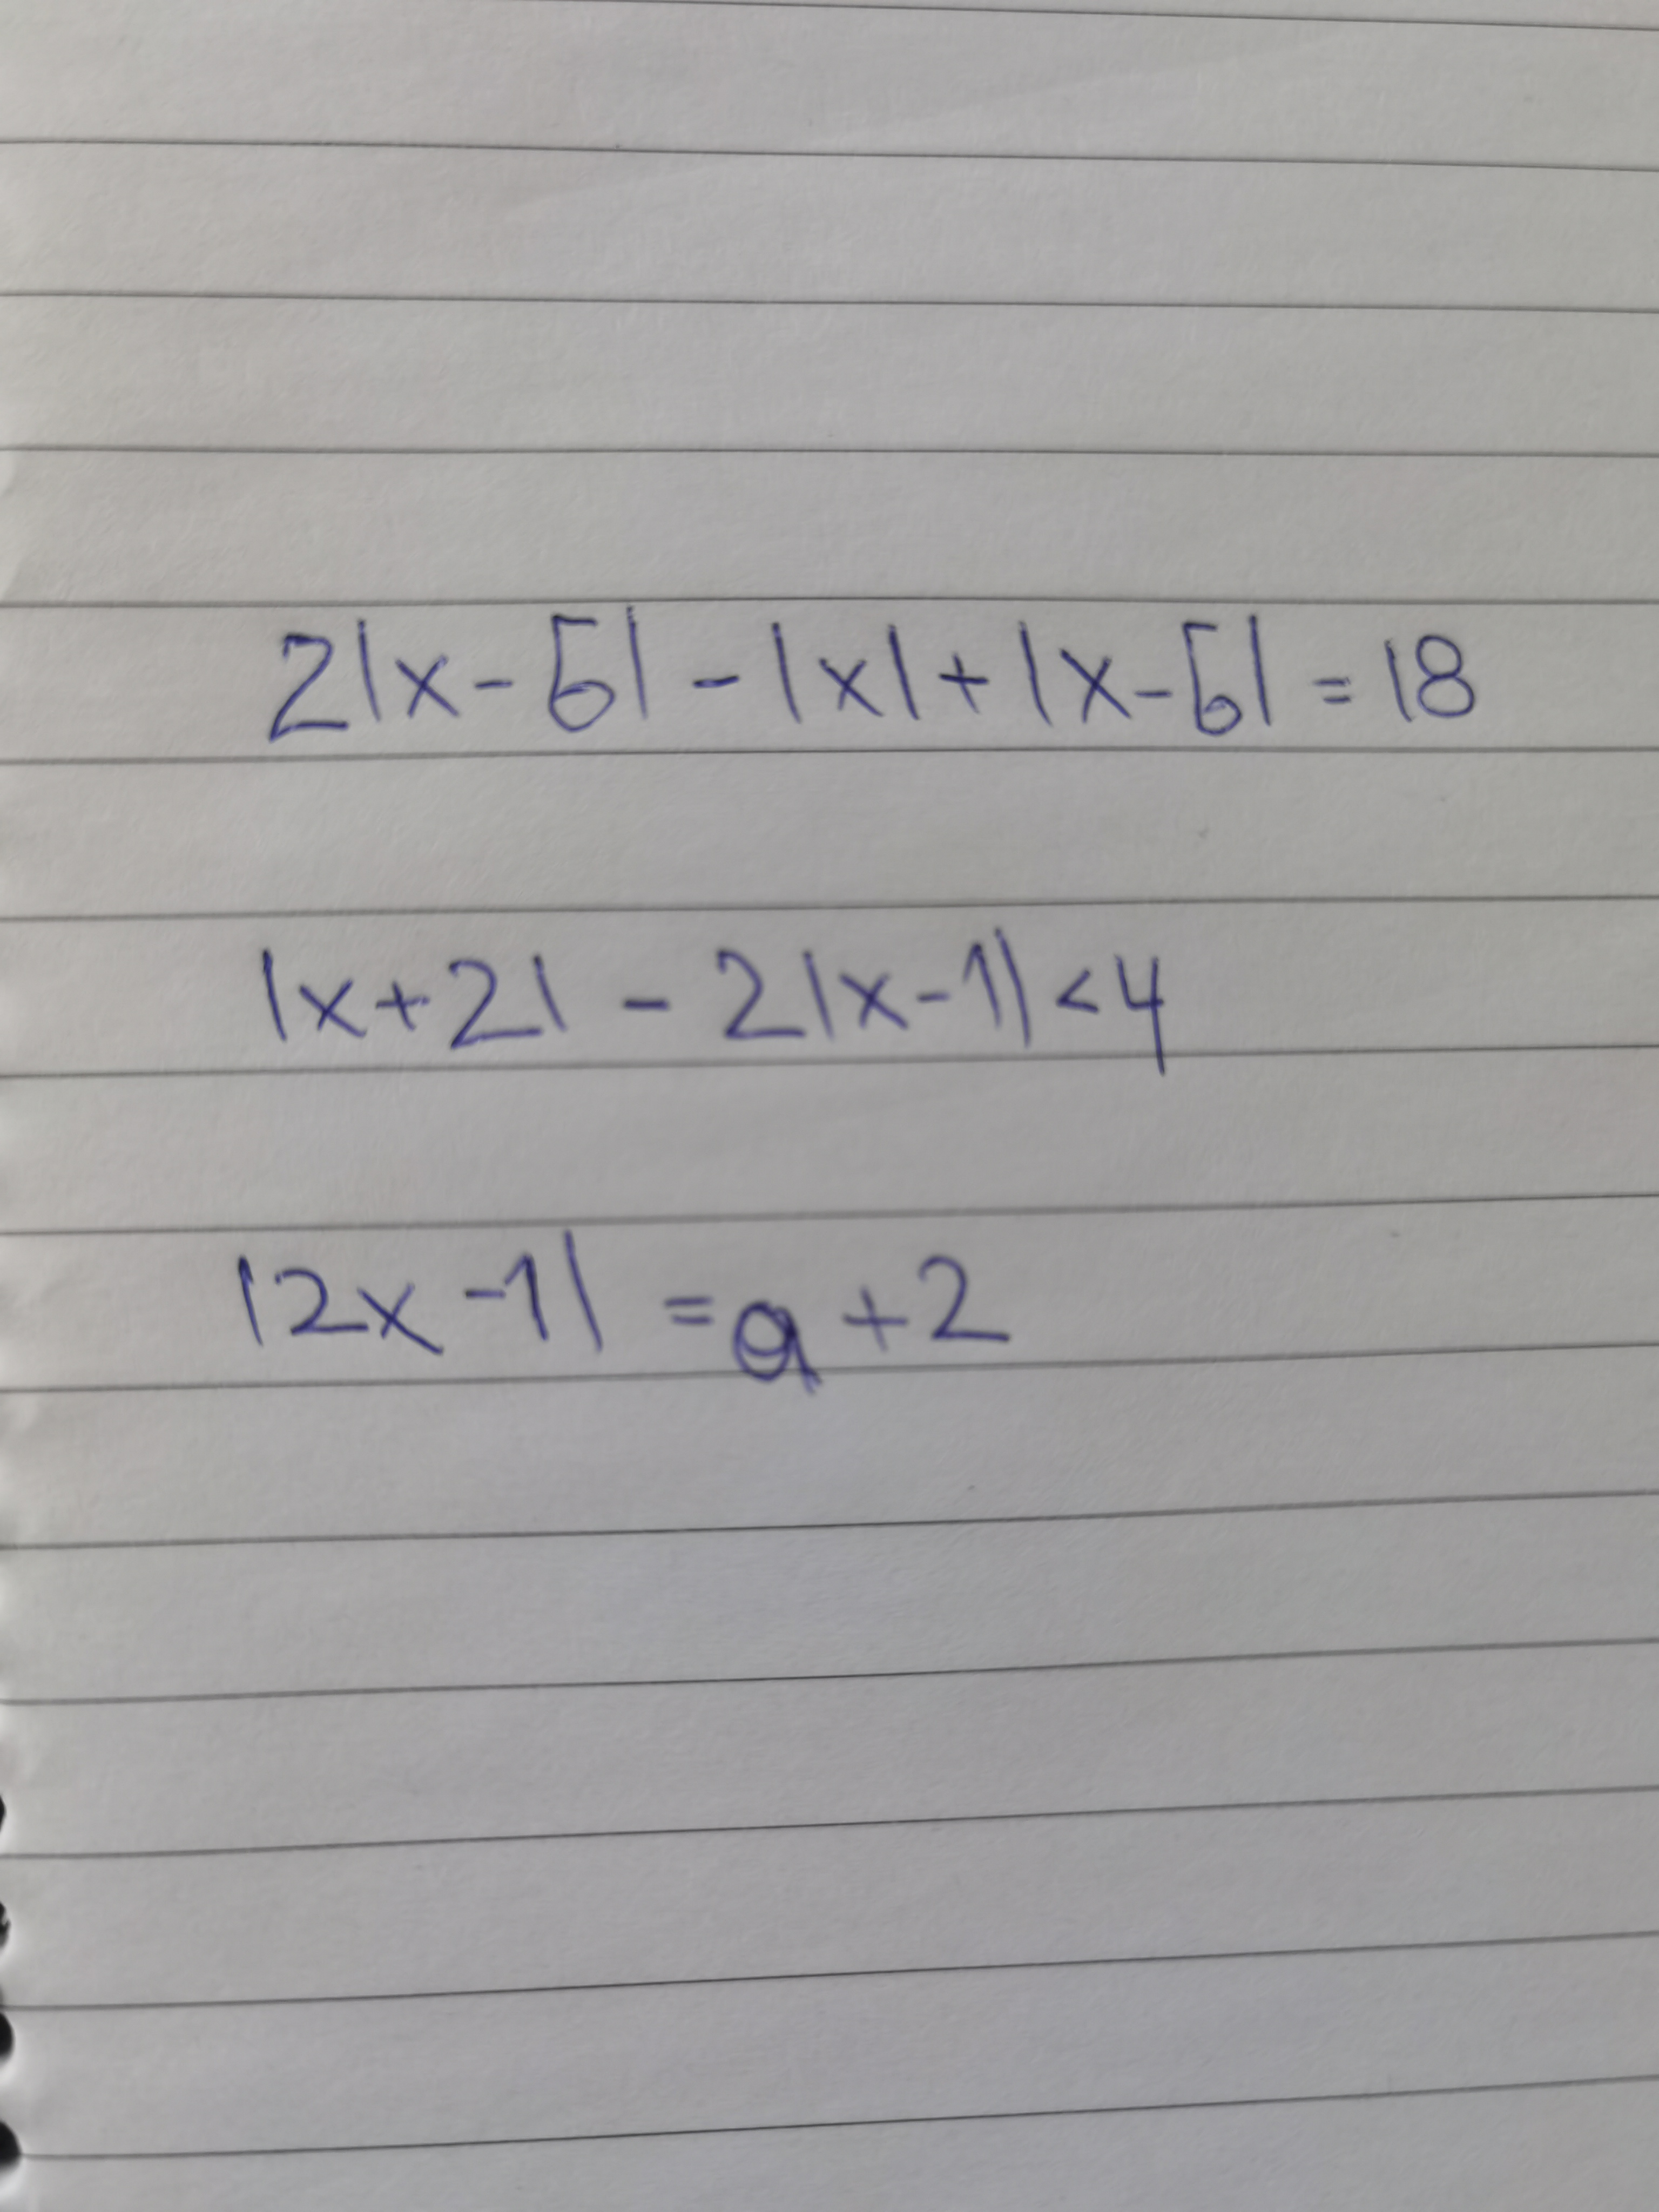 2|x-6| - |x| + |x-6| = 18
|x+2| - 2|x-1| < 4
|2x-1| = a+2